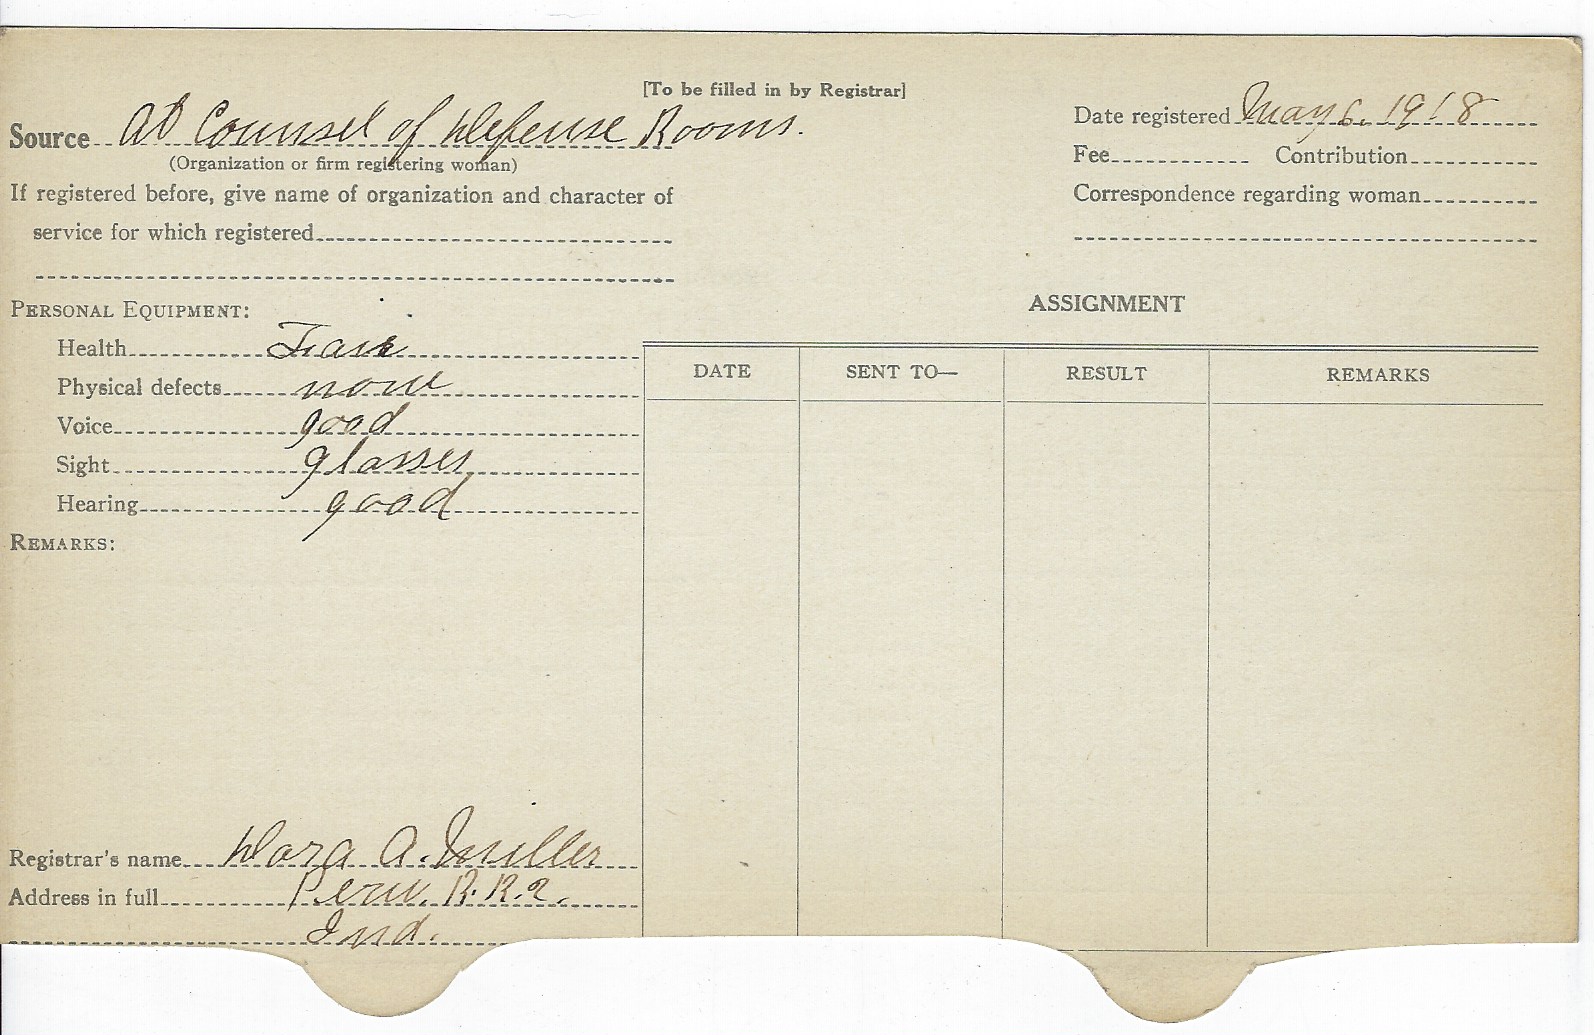 [To be filled in by Registrar]
Source At Counsel of Defense Rooms.
(Organization or firm registering woman)
If registered before, give name of organization and character of
service for which registered
Date registered May 6, 1918
Fee Contribution
Correspondence regarding woman
PERSONAL EQUIPMENT:
Health Fair
Physical defects none
Voice good
Sight glasses
Hearing good
REMARKS:
ASSIGNMENT
DATE SENT TO— RESULT REMARKS
Registrar's name Dora A. Miller
Address in full Peru. R.R.2.
Ind.